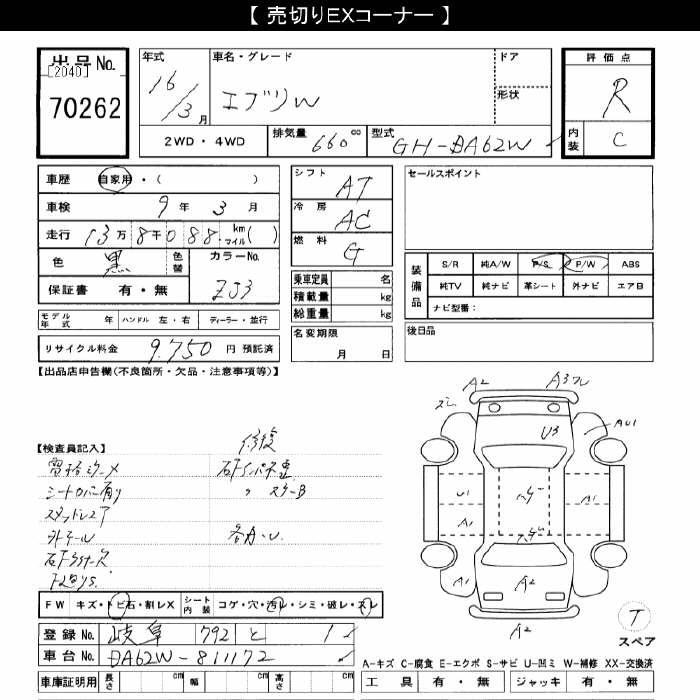 【 売切りEXコーナー 】
出品 No.
[2040]
70262
年式
16/3月
車名・グレード
エブリW
ドア
形状
評価点
R
内装
C
2WD・4WD
排気量 660 cc
型式 GH-DA62W
車歴 自家用・( )
車検 9年 3月
走行 13万8千088 km マイル( )
色 黒
色替
カラーNo. ZJ3
保証書 有・無
シフト AT
冷房 AC
燃料 G
乗車定員 名
積載量 kg
総重量 kg
セールスポイント
装備品
S/R 純A/W P/S P/W ABS
純TV 純ナビ 革シート 外ナビ エアB
ナビ型番:
モデル年式 年 ハンドル 左・右 ディーラー・並行
名変期限
月 日
後日品
リサイクル料金 9,750 円 預託済
【出品店申告欄(不良箇所・欠品・注意事項等)】
A2 A3フレ
スレ
AU1
U3
【検査員記入】
修復
電格ミラーメ
シートカバー有り
スタッドレス
U1 A1
A1
各A・U
A1 A2
A2
FW キズ・トビ石・割レX シート内装 コゲ・穴・汚レ・シミ・破レ・スレ
登録 No. 岐阜 792 と 1
車台 No. DA62W-811172
T
スペア
A-キズ C-腐食 E-エクボ S-サビ U-凹ミ W-補修 XX-交換済
車庫証明用 長さ cm 幅 cm 高さ cm
工具 有・無 ジャッキ 有・無